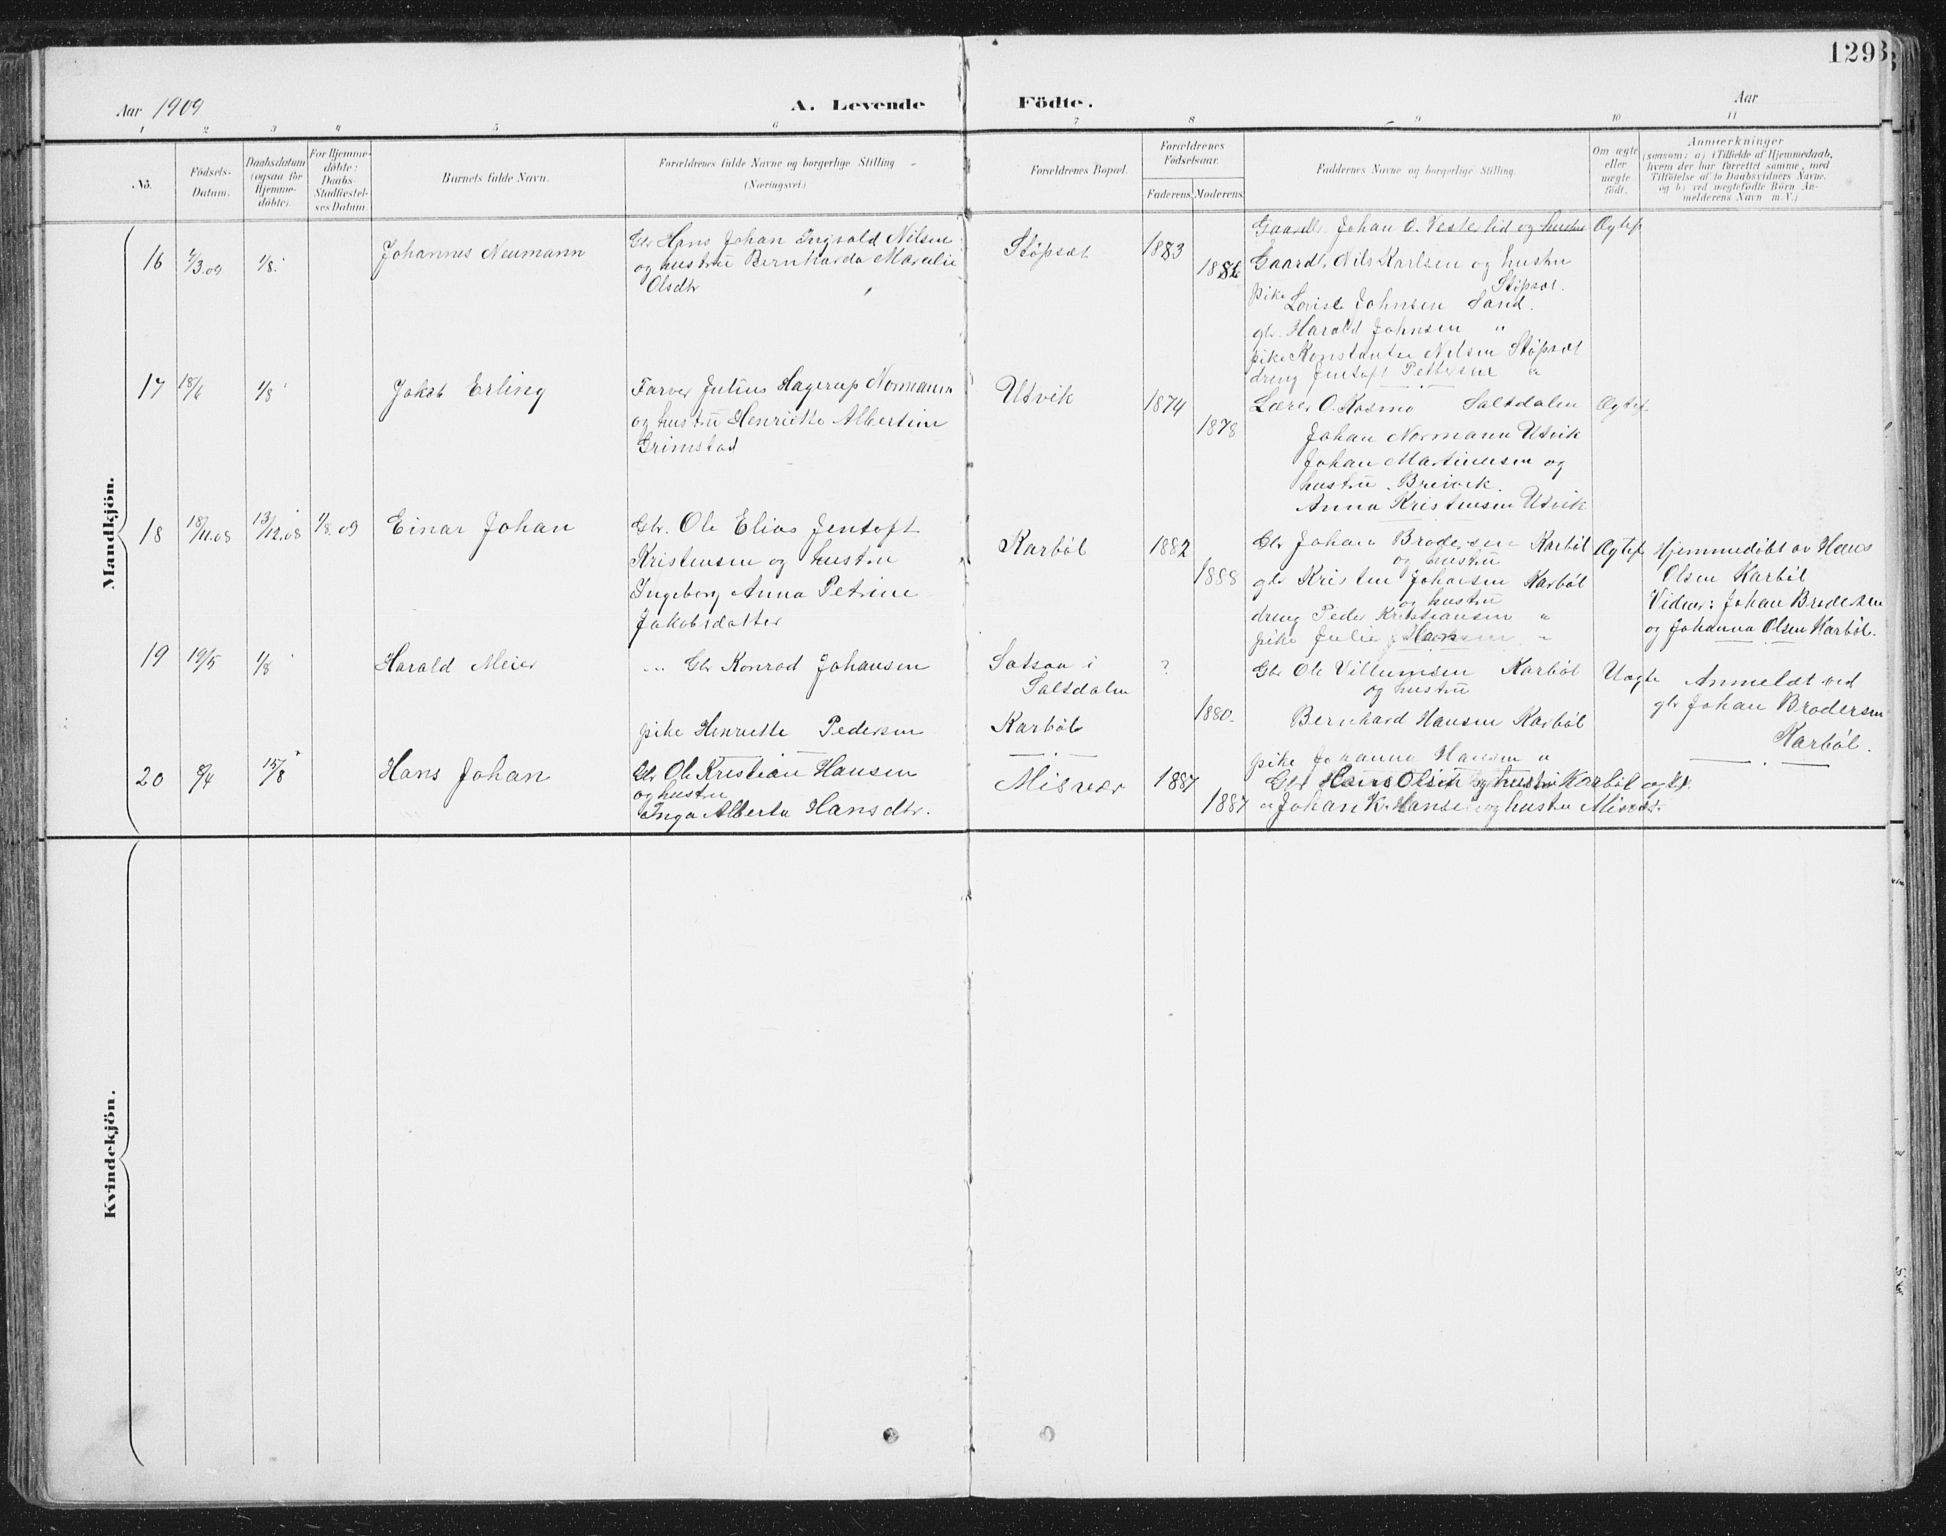 129
Aar 1909
A. Levende
Födte.
Aar
1 2 3 4 5 6 7 8 9 10 11
No.
Födsels-
Datum.
Daabsdatum
(ogsaa for
Hjemme-
döbte).
For Hjemme-
döbte:
Daabs-
Stadfæstel-
ses Datum.
Barnets fulde Navn.
Forældrenes fulde Navne og borgerlige Stilling
(Næringsvei)
Forældrenes Bopæl.
Forældrenes
Födselsaar.
Faderens. Moderens.
Faddernes Navne og borgerlige Stilling.
Om ægte
eller
uægte
födt.
Anmærkninger
(saasom: a) i Tilfælde af Hjemmedaab,
hvem der har forrettet samme, med
Tilföielse af to Daabsvidners Navne,
og b) ved uægtefödte Börn An-
melderens Navn m. V.)
Mandkjön.
16
/3.09
1/8.
Johannes Neumann
Gbr Hans Johan Ingvald Nilsen
og hustru Bernharda
Olsdtr
Støpsæt
1883
Gaardbr. Johan O. Vesterlid og hustru
Gaardbr. Nils Karlsen og hustru
Støpsæt.
pike Johnsen Sand.
gbr. Harald Johnsen "
pike Nilsen Støpsæt
dreng Jentoft Pettersen "
Ægtef.
17
18/4
1/8
Jakob Erling
Farver Julius Hagerup Normann
og hustru Henrikke Albertine
Grimstad
Utvik
1874
1878
Lærer O. Kosmo Saltdalen
Johan Normann Utvik
Johan Martinusen og
hustru. Breivik.
Anna Kristensen Utvik
Ægtef.
18
18/11.08
13/12.08
1/8.09
Einar Johan
Gbr. Ole Elias Jentoft
Kristensen og hustru
Ingeborg Anna Petrine
Jakobsdatter
Karbøl
1882
1888
Gbr Johan Brodersen Karbøl
og hustru
gbr Kristen Johansen Karbøl
og hustru
dreng Peder Kristiansen "
pike Julie Hansen "
Ægtef.
Hjemmedøbt av Hans
Olsen Karbøl
Vidner: Johan Brodersen
og Johanna Olsen Karbøl.
19
19/5
1/8
Harald Meier
Gbr Konrad Johansen
pike Henriette Pedersen
i
Saltdalen
Karbøl
?
1880.
Gbr Ole Villumsen Karbøl
og hustru
Bernhard Hansen Karbøl
pike Johanna Hansen "
Uægte
Anmeldt ved
gbr Johan Brodersen
Karbøl.
20
/4
15/8
Hans Johan
Gbr Ole Kristian Hansen
og hustru
Inga Alberta Hansdtr.
Misvær
1887
1887
Gbr Hans Olsen og hustru Karbøl
" Johan K. Hansen og hustru Misvær
Kvindekjön.